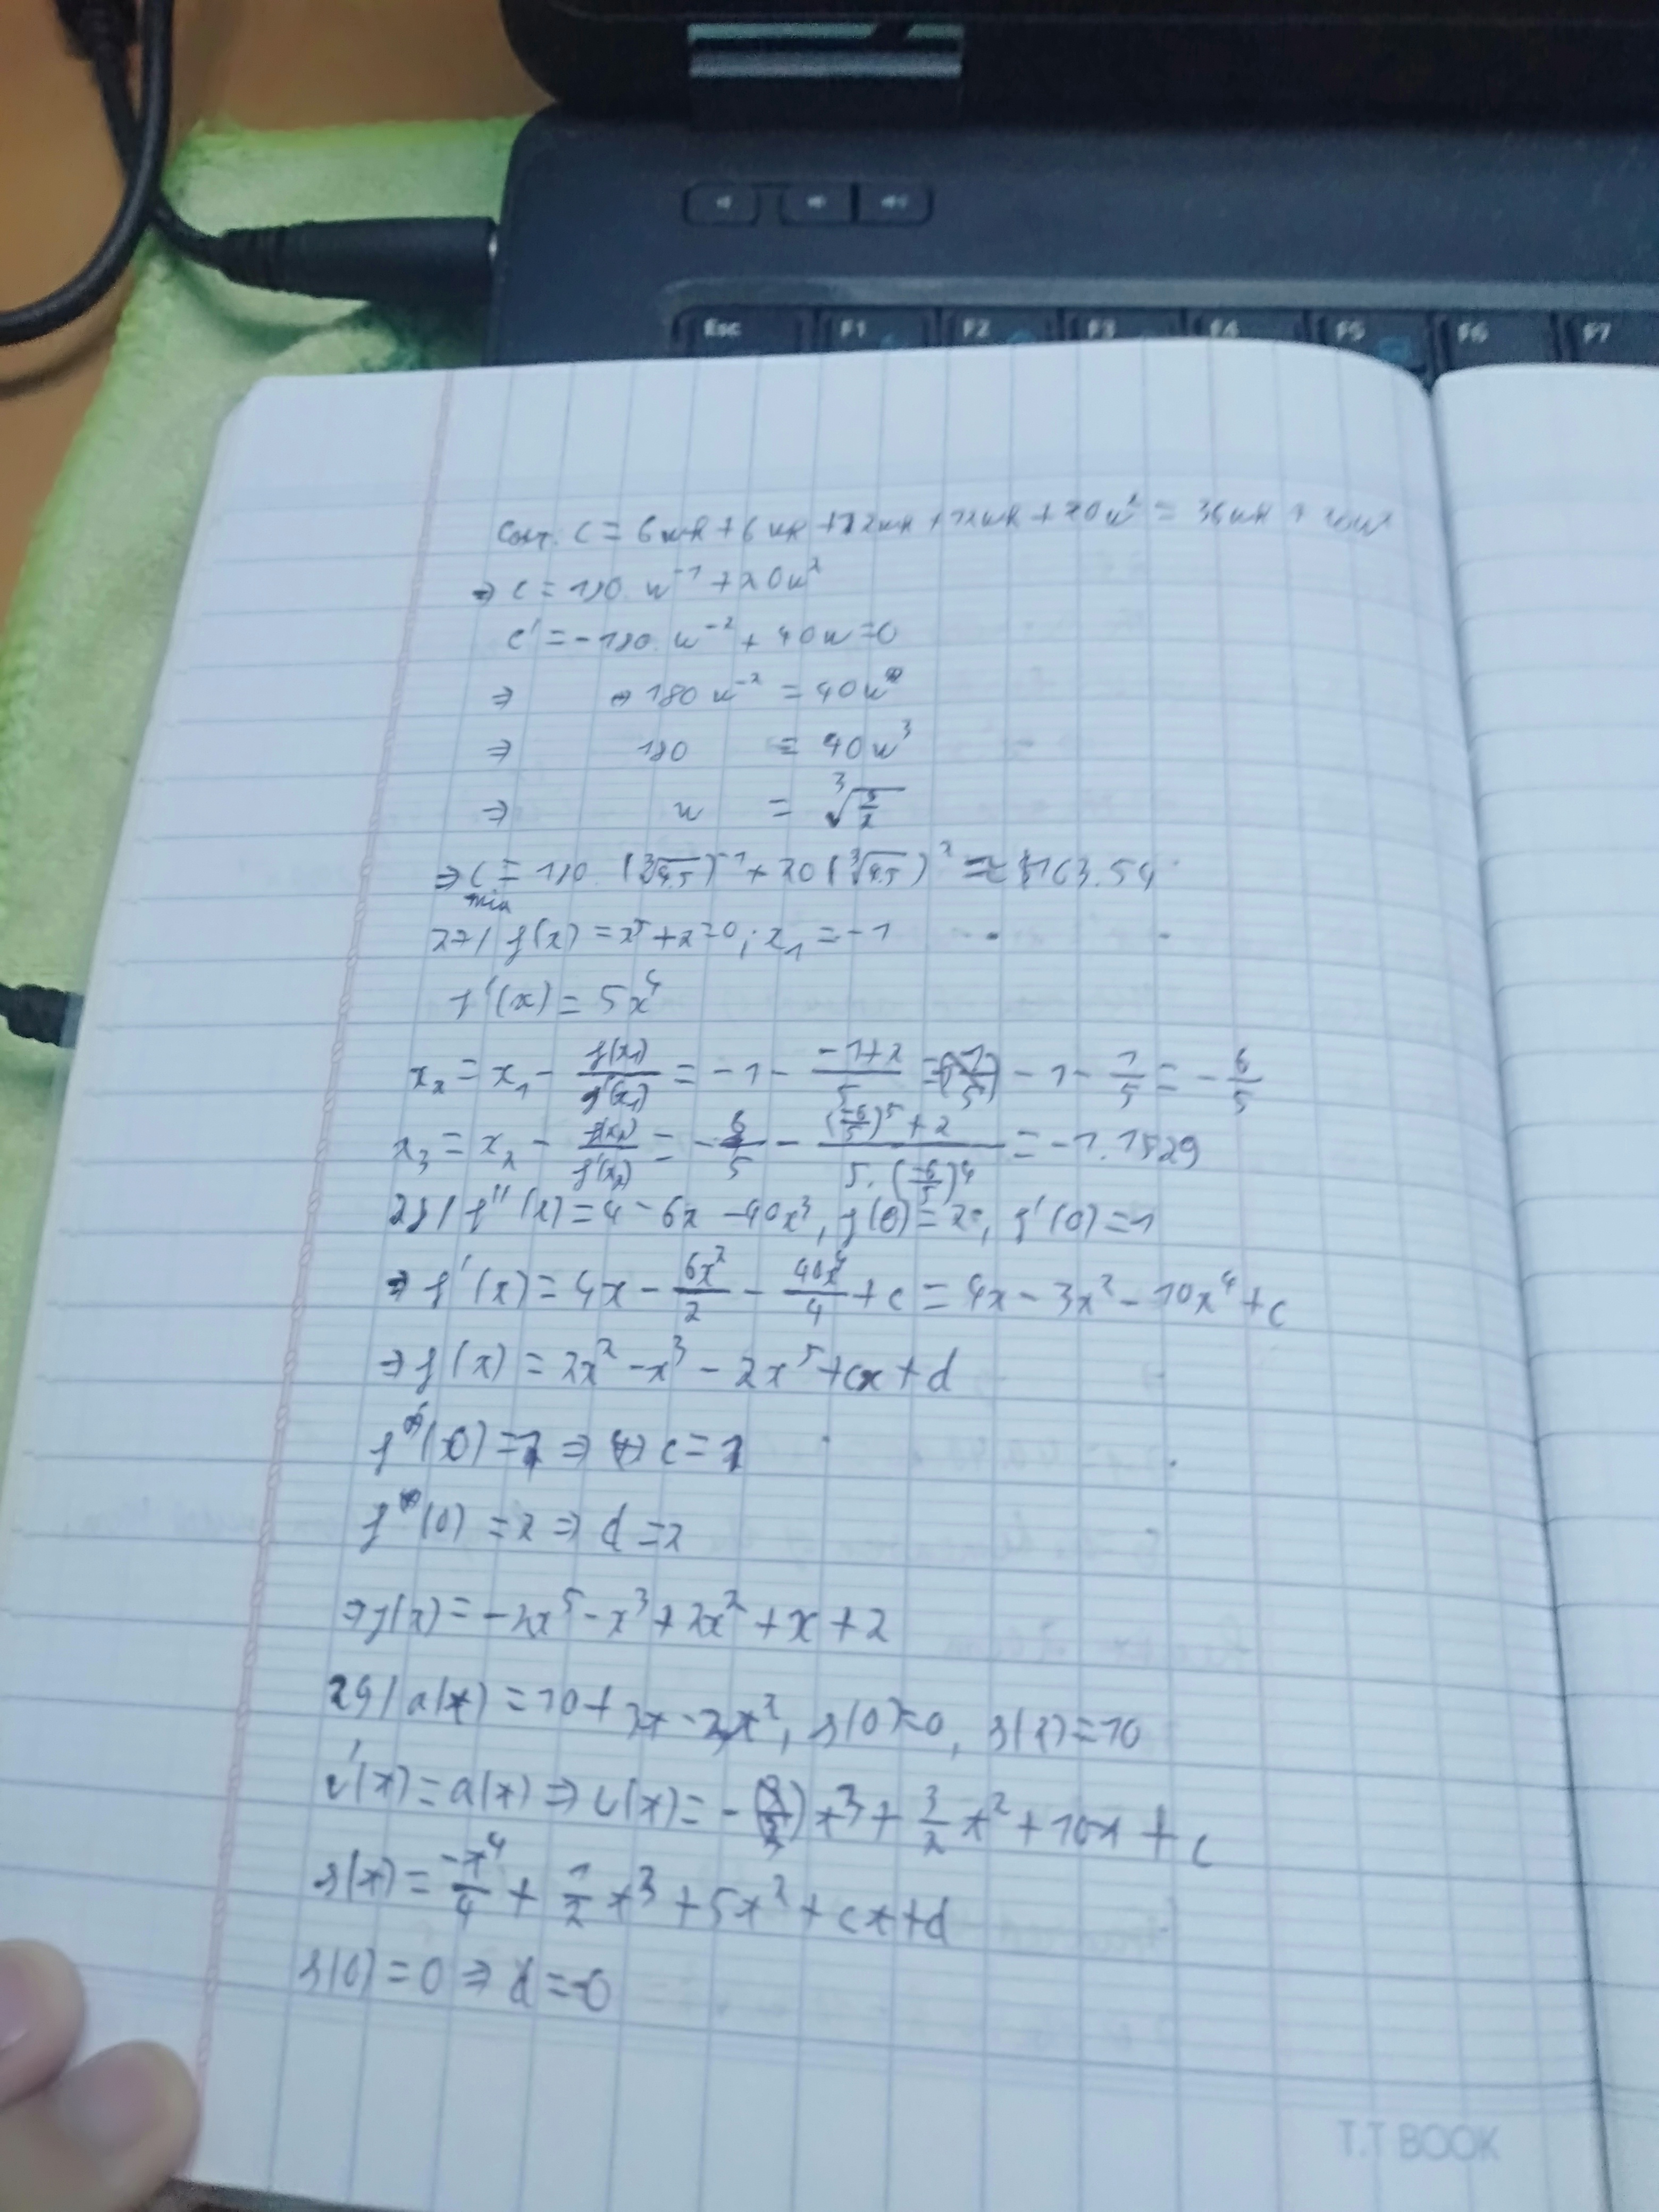 Esc F1 F2 F3 F4 F5 F6 F7
Cost. C = 6wh + 6wh + 12wh + 12wh + 20w² = 36wh + 20w²
⇒ C = 180 w⁻¹ + 20w²
C' = -180 w⁻² + 40w = 0
⇒ ⇒ 180 w⁻² = 40w
⇒ 180 = 40w³
⇒ w = ∛(9/2)
⇒ C min = 180 . (∛4.5)⁻¹ + 20 (∛4.5)² = ≈ $163.54
27/ f(x) = x⁵ + 2 = 0; x₁ = -1
f'(x) = 5x⁴
x₂ = x₁ - f(x₁)/f'(x₁) = -1 - (-1+2)/5 = -1 - 1/5 = -6/5
x₃ = x₂ - f(x₂)/f'(x₂) = -6/5 - ((-6/5)⁵ + 2)/(5.(-6/5)⁴) = -1.1529
28/ f''(x) = 4 - 6x - 40x³, f(0) = 2, f'(0) = 1
⇒ f'(x) = 4x - 6x²/2 - 40x⁴/4 + c = 4x - 3x² - 10x⁴ + c
⇒ f(x) = 2x² - x³ - 2x⁵ + cx + d
f'(0) = 1 ⇒ c = 1
f(0) = 2 ⇒ d = 2
⇒ f(x) = -2x⁵ - x³ + 2x² + x + 2
29/ a(x) = 10 + 3x - 3x², s(0) = 0, s(2) = 10
v'(x) = a(x) ⇒ v(x) = - x³ + 3/2 x² + 10x + c
s(x) = -x⁴/4 + 1/2 x³ + 5x² + cx + d
s(0) = 0 ⇒ d = 0
T.T BOOK